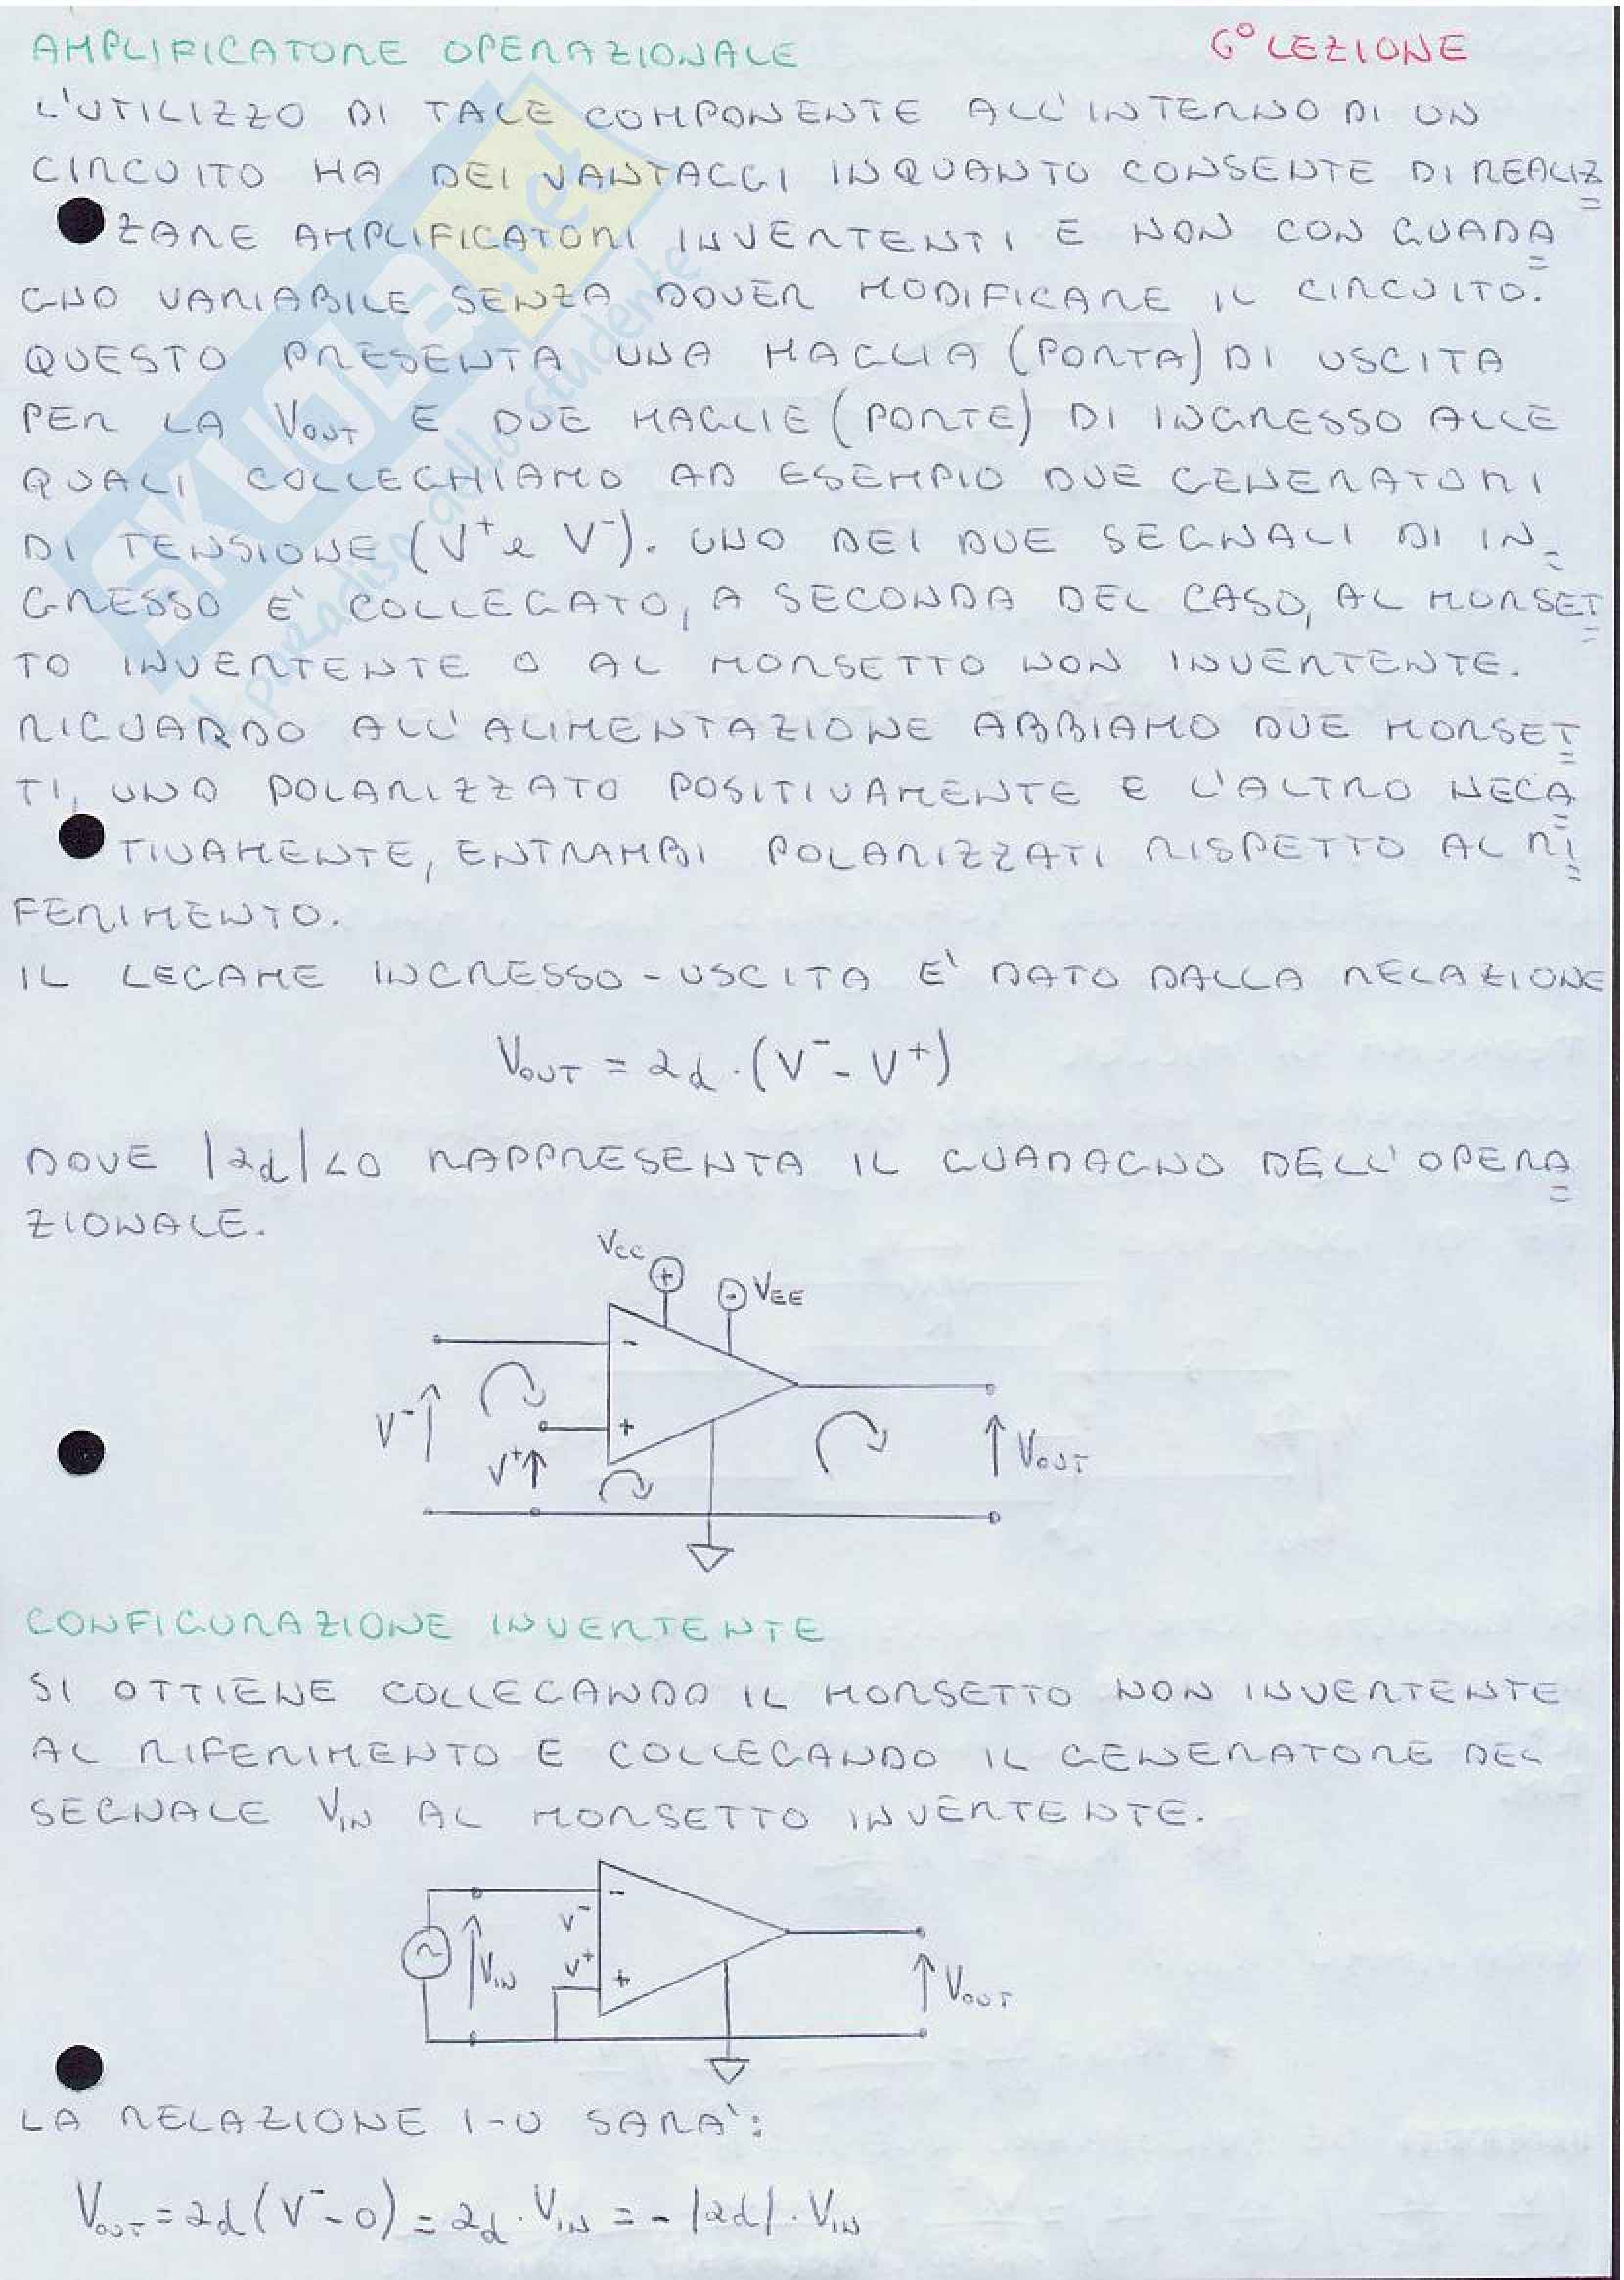 AMPLIFICATORE OPERAZIONALE 6° LEZIONE
L'UTILIZZO DI TALE COMPONENTE ALL'INTERNO DI UN
CIRCUITO HA DEI VANTAGGI INQUANTO CONSENTE DI REALIZ=
ZARE AMPLIFICATORI INVERTENTI E NON CON GUADA=
GNO VARIABILE SENZA DOVER MODIFICARE IL CIRCUITO.
QUESTO PRESENTA UNA MAGLIA (PORTA) DI USCITA
PER LA VOUT E DUE MAGLIE (PORTE) DI INGRESSO ALLE
QUALI COLLEGHIAMO AD ESEMPIO DUE GENERATORI
DI TENSIONE (V⁺ e V⁻). UNO DEI DUE SEGNALI DI IN=
GRESSO E' COLLEGATO, A SECONDA DEL CASO, AL MORSET=
TO INVERTENTE O AL MORSETTO NON INVERTENTE.
RIGUARDO ALL'ALIMENTAZIONE ABBIAMO DUE MORSET=
TI, UNO POLARIZZATO POSITIVAMENTE E L'ALTRO NEGA=
TIVAMENTE, ENTRAMBI POLARIZZATI RISPETTO AL RI=
FERIMENTO.
IL LEGAME INGRESSO-USCITA E' DATO DALLA RELAZIONE
VOUT = ad · (V⁻ - V⁺)
DOVE |ad|<0 RAPPRESENTA IL GUADAGNO DELL'OPERA=
ZIONALE.
VCC
+
- VEE
-
V⁻
+
V⁺
VOUT
CONFIGURAZIONE INVERTENTE
SI OTTIENE COLLEGANDO IL MORSETTO NON INVERTENTE
AL RIFERIMENTO E COLLEGANDO IL GENERATORE DEL
SEGNALE VIN AL MORSETTO INVERTENTE.
-
V⁻
~
VIN
V⁺
+
VOUT
LA RELAZIONE I-U SARA':
VOUT = ad (V⁻ - 0) = ad · VIN = - |ad| · VIN
SKUOLA.net
il paradiso dello studente